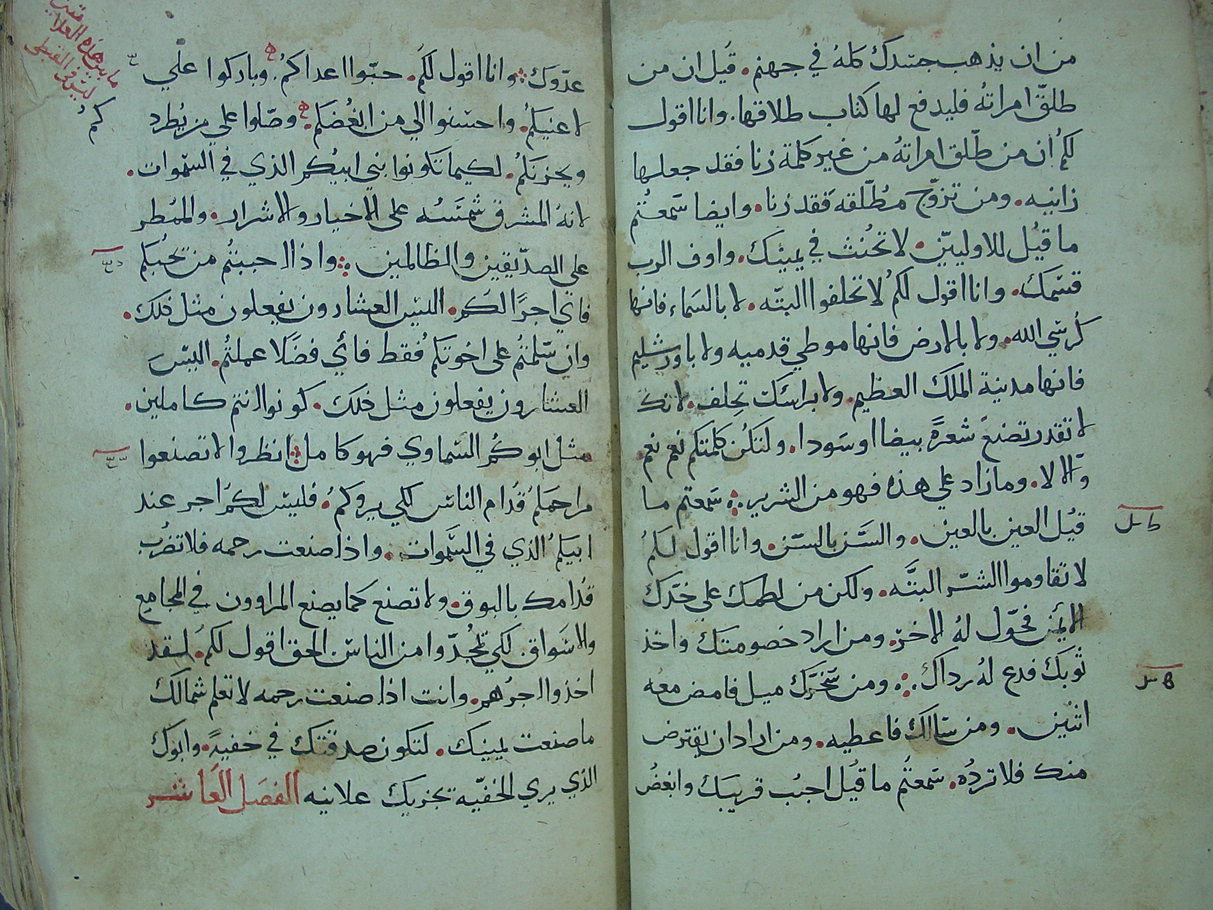 من ان يذهب جسدك كله في جهنم. قيل ان من
طلق امراته فليدفع لها كتاب طلاقها. وانا اقول
لكم ان من طلق امراته من غير كلمة زنا فقد جعلها
زانيه. ومن تزوج مطلقه فقد زنا. وايضا سمعتم
ما قيل للاوليين. لا تحنث في يمينك. واوف الرب
قسمك. وانا اقول لكم لا تحلفوا البته. لا بالسماء فانها
كرسي الله. ولا بالارض فانها موطي قدميه ولا باورشليم
فانها مدينة الملك العظيم. ولا براسك تحلف. لانك
لا تقدر تصنع شعرة بيضا او سودا. ولتكن كلمتكم نعم نعم.
ولا لا. وما زاد علي هذه فهو من الشرير. سمعتم ما
قيل العين بالعين. والسن بالسن. وانا اقول لكم
لا تقاوموا الشر البته. ولكن من لطمك علي خدك
الايمن فحول له الاخر. ومن اراد خصومتك واخذ
ثوبك فدع له رداك. ومن سخرك ميل فامض معه
اثنين. ومن سالك فاعطيه. ومن اراد ان يقترض
منك فلا ترده. سمعتم ما قيل احبب قريبك وابغض
عدوك. وانا اقول لكم. حبوا اعداكم. وباركوا علي
لاعنيكم. واحسنوا الي من ابغضكم. وصلوا علي من يطرد
ويحزنكم. لكيما تكونوا بني ابيكم الذي في السموات.
لانه المشرق شمسه على الاخيار والاشرار. والممطر
على الصديقين والظالمين. واذا احببتم من تحبكم
فاي اجرا لكم. اليس العشارون يفعلون مثل ذلك.
وان سلمتم على اخوتكم فقط فاي فضلا عملتم. اليس
العشارون يفعلون مثل ذلك. كونوا انتم كاملين.
مثل ابوكم السماوي فهو كامل انظروا لا تصنعوا
مراحمكم قدام الناس لكي يروكم. فليس لكم اجر عند
ابيكم الذي في السموات. واذا صنعت رحمه فلا تضرب
قدامك بالبوق. ولا تصنع كما يصنع المراوون في المجامع
والاسواق. لكي يمجدوا من الناس الحق اقول لكم لقد
اخذوا اجرهم. وانت اذا صنعت رحمه لا تعلم شمالك
ما صنعت يمينك. لتكون صدقتك في خفية. وابوك
الذي يري الخفيه يجزيك علانيه الفصل العاشر